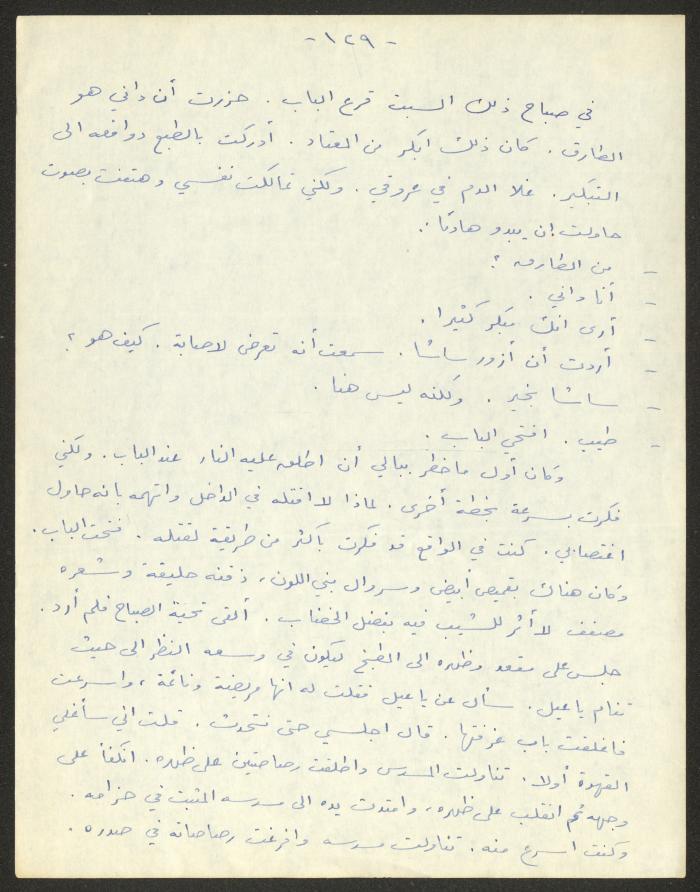 - ١٢٩ -
في صباح ذلك السبت قرع الباب . حزرت أن داني هو
الطارق . كان ذلك ابكر من المعتاد . أدركت بالطبع دوافعه الى
التبكير . غلا الدم في عروقي . ولكني تمالكت نفسي وهتفت بصوت
حاولت ان يبدو هادئا .
- من الطارق ؟
- أنا داني .
- أرى انك مبكر كثيرا .
- أردت أن أزور ساشا . سمعت أنه تعرض لاصابة . كيف هو ؟
- ساشا بخير . ولكنه ليس هنا .
- طيب . افتحي الباب .
وكان أول ما خطر ببالي أن اطلق عليه النار عند الباب . ولكني
فكرت بسرعة بخطة أخرى . لماذا لا اقتله في الداخل واتهمه بانه حاول
اغتصابي . كنت في الواقع قد فكرت بأكثر من طريقة لقتله . فتحت الباب .
وكان هناك بقميص أبيض وسروال بني اللون ، ذقنه حليقة وشعره
مصفف لا أثر للشيب فيه بفضل الخضاب . ألقى تحية الصباح فلم أرد .
جلس على مقعد وظهره الى المطبخ ليكون في وسعه النظر الى حيث
تنام ياعيل . سأل عن ياعيل فقلت له انها مريضة ونائمة ، واسرعت
فاغلقت باب غرفتها . قال اجلسي حتى نتحدث . قلت اني سأغلي
القهوة أولا . تناولت المسدس واطلقت رصاصتين على ظهره . انكفأ على
وجهه ثم انقلب على ظهره ، وامتدت يده الى مسدسه المثبت في حزامه .
وكنت اسرع منه . تناولت مسدسه وافرغت رصاصاته في صدره .